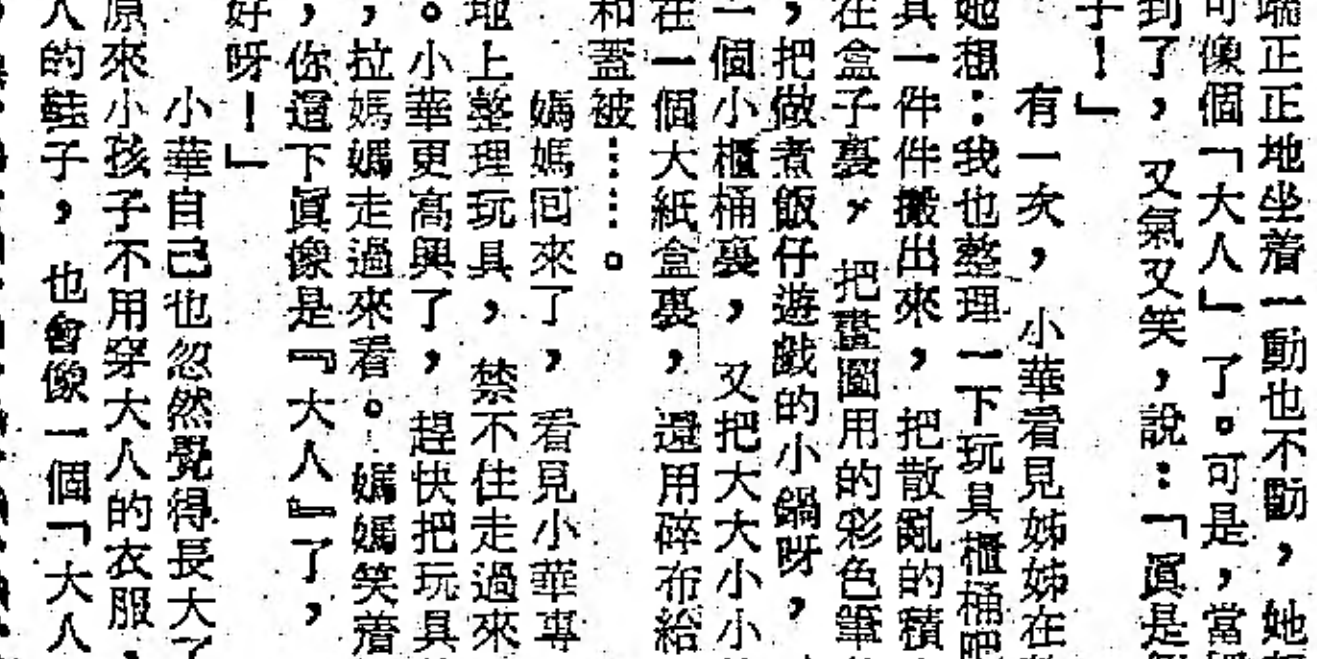 端正正地坐着一動也不動，她
可像個「大人」了。可是，當
到了，又氣又笑，說：「眞是
子！」
有一次，小華看見姊姊在
她想：我也整理一下玩具櫃桶吧
具一件件搬出來，把散亂的積
在盒子裏，把畫圖用的彩色筆
，把做煮飯仔遊戲的小鍋呀，
一個小櫃桶裏，又把大大小小
在一個大紙盒裏，還用碎布給
和蓋被……。
媽媽回來了，看見小華專
地上整理玩具，禁不住走過來
。小華更高興了，趕快把玩具
，拉媽媽走過來看。媽媽笑着
，你這下眞像是『大人』了，
好呀！」
小華自己也忽然覺得長大了
原來小孩子不用穿大人的衣服，
人的鞋子，也會像一個「大人